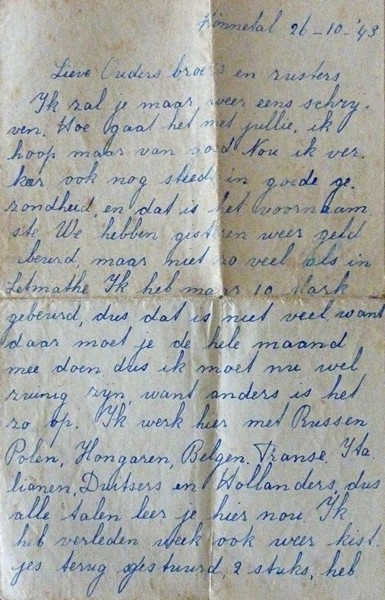 Hönnetal 26-10-'43
Lieve Ouders broers en zusters
Ik zal je maar weer eens schry-
ven. Hoe gaat het met jullie, ik
hoop maar van goed Nou ik ver-
keer ook nog steeds in goede ge-
zondheid, en dat is het voornaam
ste We hebben gisteren weer geld
beurd, maar niet zo veel als in
Letmathe Ik heb maar 10 Mark
gebeurd, dus dat is niet veel want
daar moet je de hele maand
mee doen dus ik moet nu wel
zuinig zijn, want anders is het
zo op. Ik werk hier met Russen
Polen, Hongaren, Belgen. Franse. Ita
lianen, Duitsers en Hollanders, dus
alle talen leer je hier nou. Ik
heb verleden week ook weer kist-
jes terug gestuurd, 2 stuks, heb